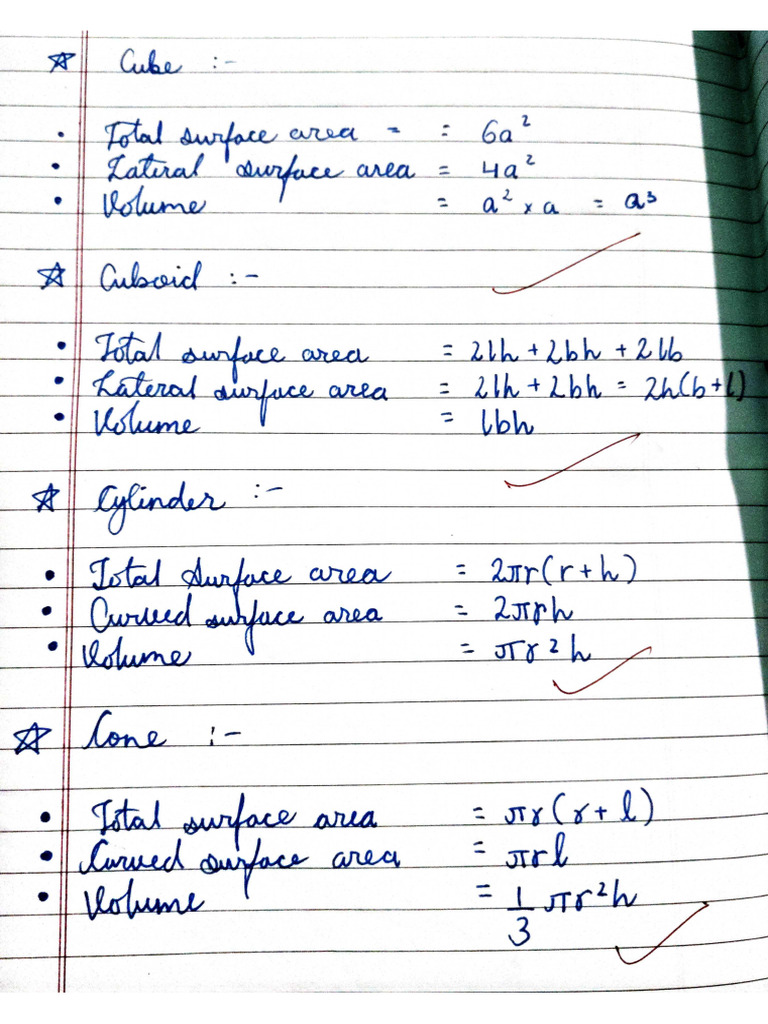 ☆ Cube :-
• Total surface area - = 6a²
• Lateral surface area = 4a²
• Volume = a² × a = a³
☆ Cuboid :-
• Total surface area = 2lh + 2bh + 2lb
• Lateral surface area = 2lh + 2bh = 2h(b+l)
• Volume = lbh
☆ Cylinder :-
• Total Surface area = 2πr(r+h)
• Curved surface area = 2πrh
• Volume = πr²h
☆ Cone :-
• Total surface area = πr(r+l)
• Curved surface area = πrl
• Volume = 1/3 πr²h